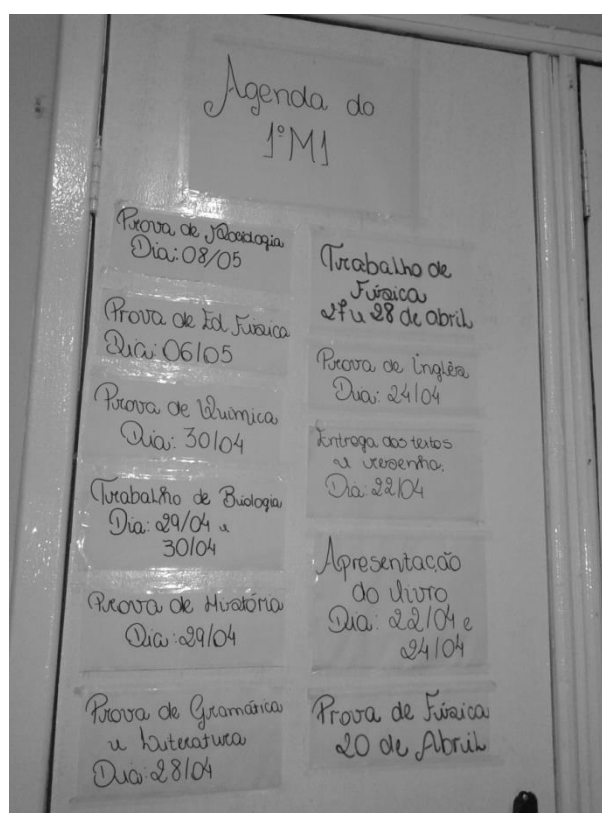 Agenda do
1º M1
Prova de Sociologia
Dia: 08/05
Prova de Ed. Física
Dia: 06/05
Prova de Química
Dia: 30/04
Trabalho de Biologia
Dia: 29/04 e
30/04
Prova de História
Dia: 29/04
Prova de Gramática
e Literatura
Dia: 28/04
Trabalho de
Física
27 e 28 de abril
Prova de Inglês
Dia: 24/04
Entrega dos textos
e resenha.
Dia: 22/04
Apresentação
do livro
Dia: 22/04 e
24/04
Prova de Física
20 de Abril